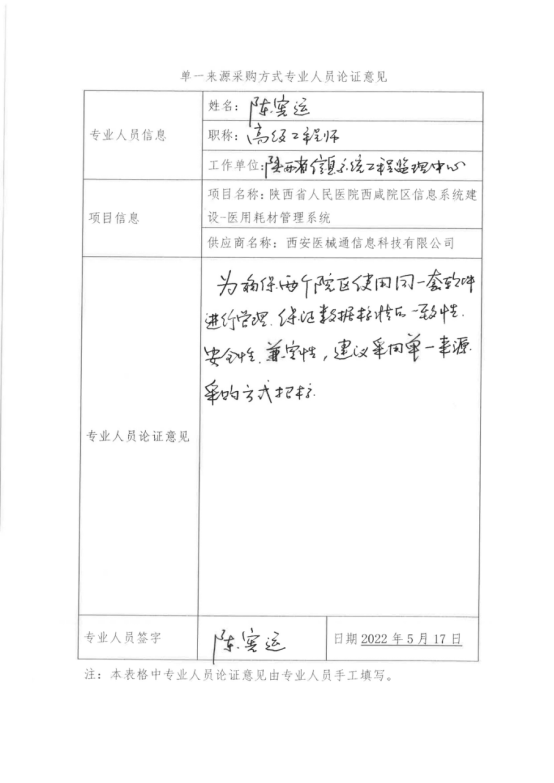 单一来源采购方式专业人员论证意见
专业人员信息
姓名：陈宪运
职称：高级工程师
工作单位：陕西省信息系统工程监理中心
项目信息
项目名称：陕西省人民医院西咸院区信息系统建
设-医用耗材管理系统
供应商名称：西安医械通信息科技有限公司
专业人员论证意见
为确保两个院区使用同一套软件
进行管理、保证数据标准一致性、
安全性、兼容性，建议采用单一来源
采购方式招标.
专业人员签字
陈宪运
日期 2022 年 5 月 17 日
注：本表格中专业人员论证意见由专业人员手工填写。